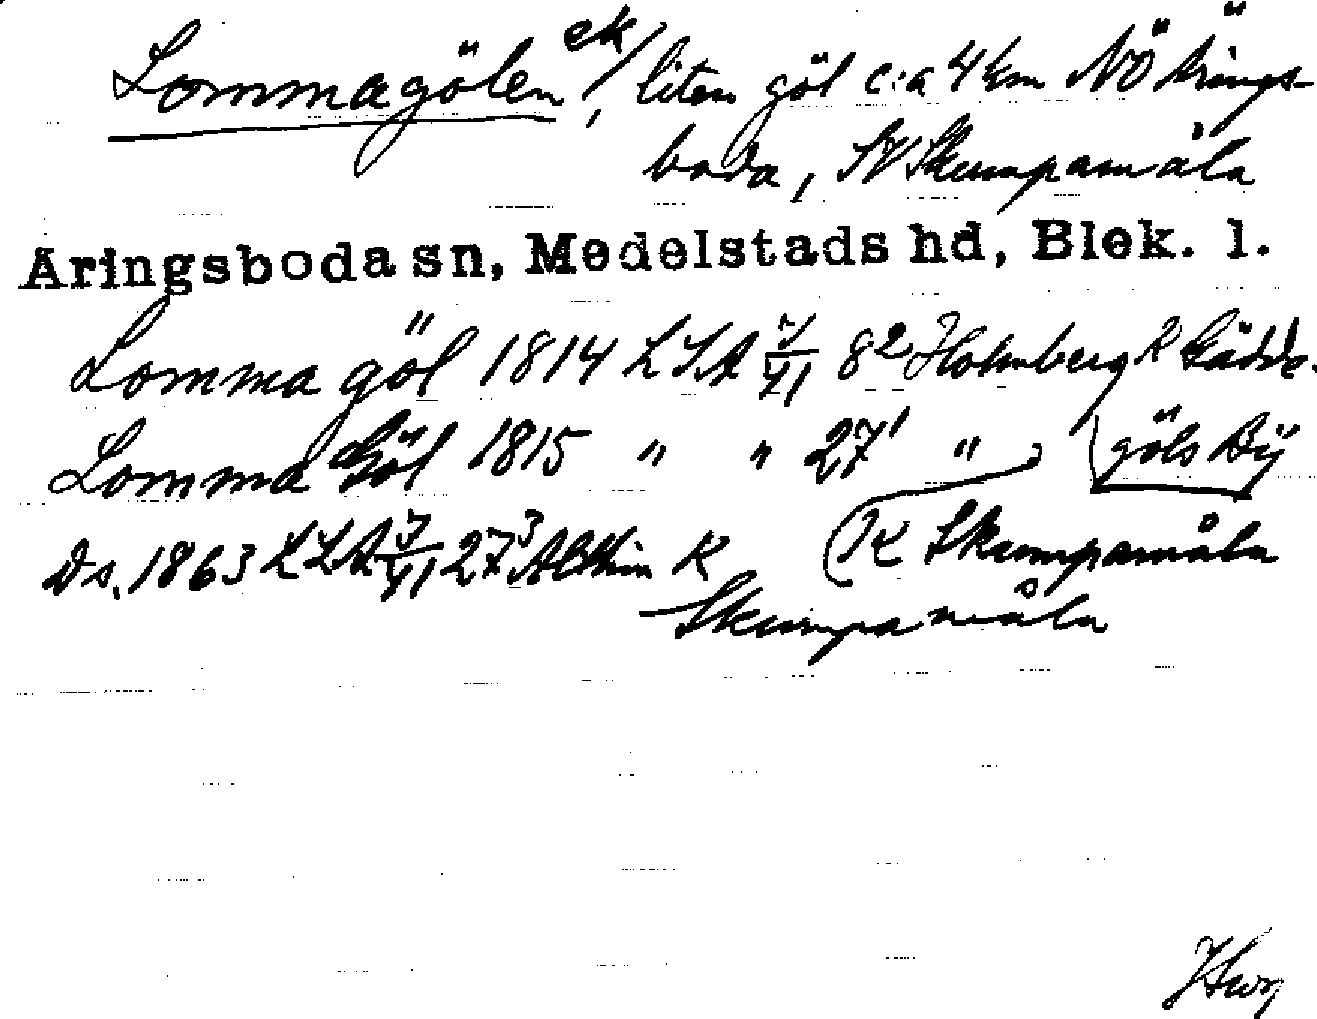 Lommagölen ek/, liten göl c:a 4 km NÖ Årings-
boda, SV Skumpamåla
Aringsboda sn, Medelstads hd, Blek. l.
Lomma göl 1814 LSA J/VI 8² Holmberg K Gädde-
Lomma Göl 1815 " " 27¹ " göls Dÿ
Ds. 1863 LSA J/VI 27³ K (K Skumpamåla
Skumpamåla